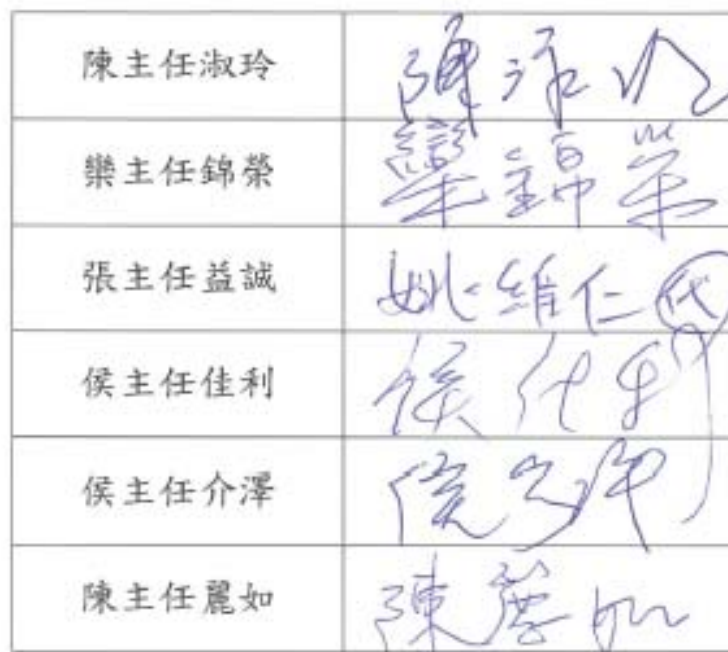 陳主任淑玲 陳淑玲
欒主任錦榮 欒錦榮
張主任益誠 姚維仁代
侯主任佳利 侯佳利
侯主任介澤 侯介澤
陳主任麗如 陳麗如